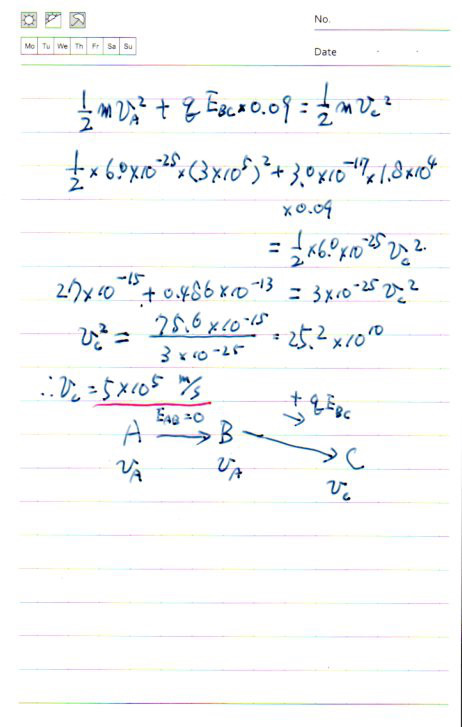 No.
Mo Tu We Th Fr Sa Su
Date
½mv_A² + qE_BC×0.09 = ½mv_c²
½×6.0×10⁻²⁵×(3×10⁵)² + 3.0×10⁻¹⁷×1.8×10⁴
×0.09
= ½×6.0×10⁻²⁵ v_c²
27×10⁻¹⁵ + 0.486×10⁻¹³ = 3×10⁻²⁵ v_c²
v_c² = 75.6×10⁻¹⁵ / 3×10⁻²⁵ = 25.2×10¹⁰
∴ v_c = 5×10⁵ m/s
+ qE_BC
→
E_AB = 0
A → B → C
v_A v_A v_c